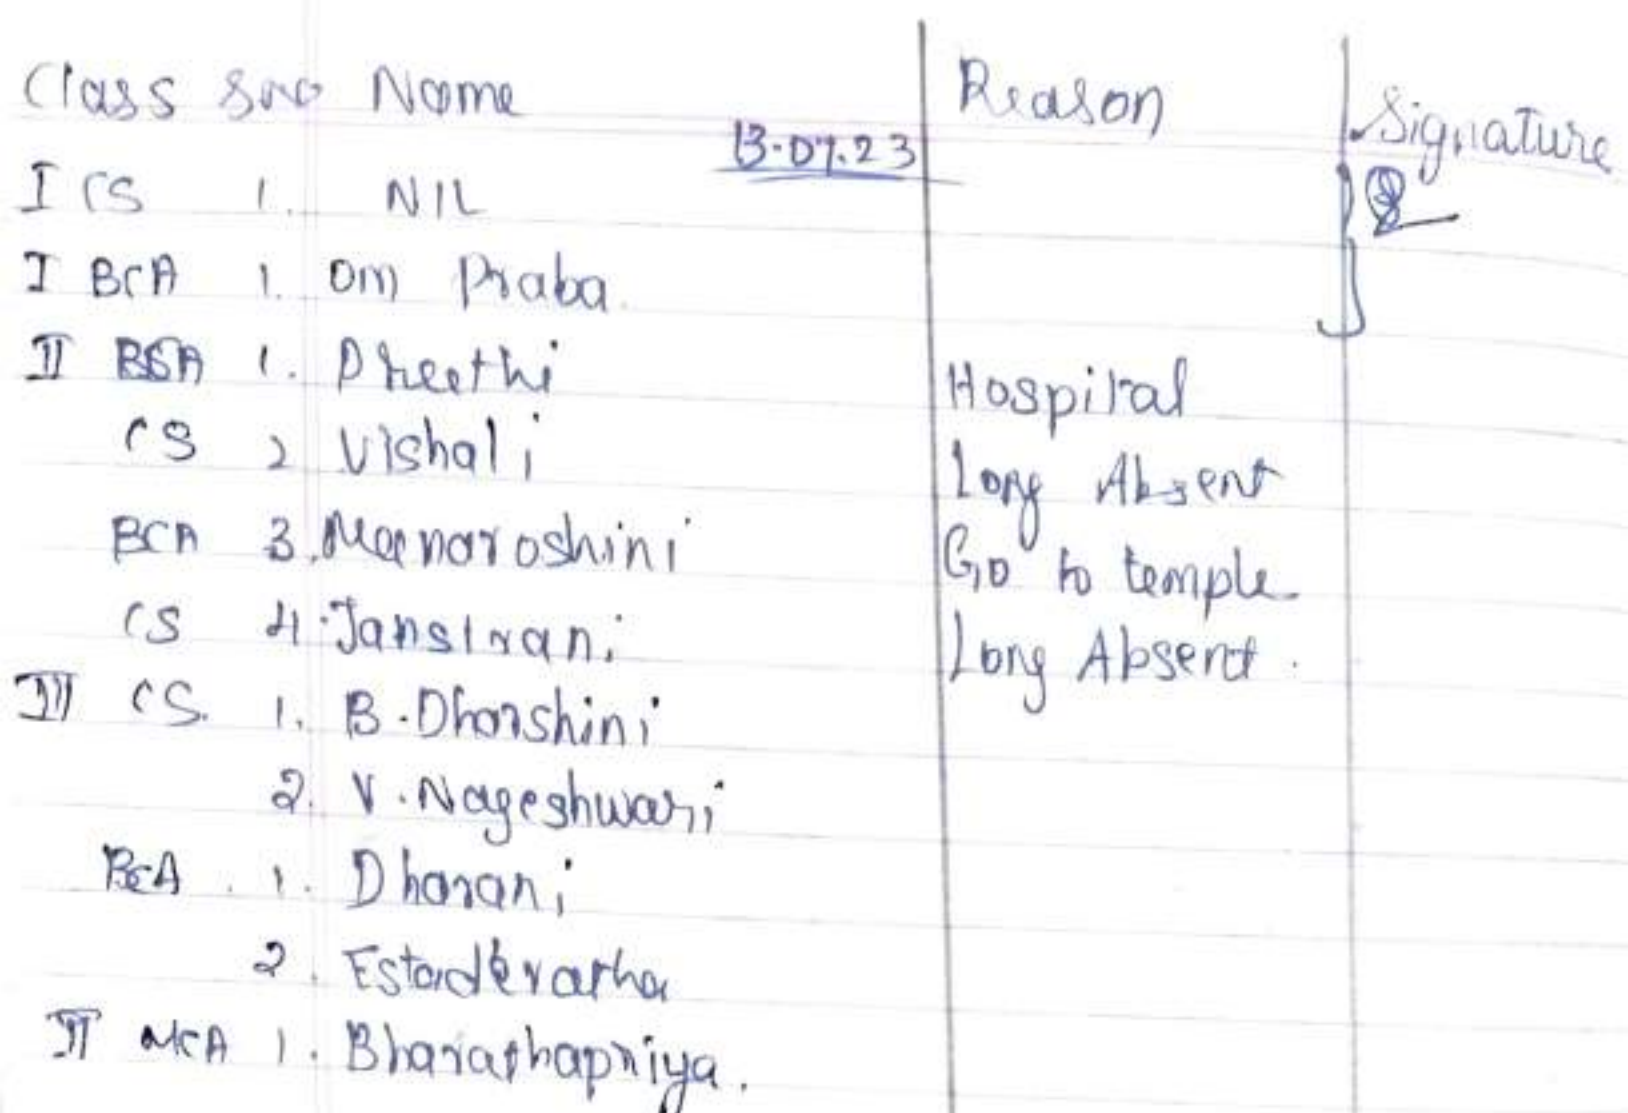 Class Sno Name Reason Signature
13.07.23
I CS 1. NIL
I BCA 1. Om Praba.
II BCA 1. Preethi Hospital
CS 2 Vishali Long Absent
BCA 3. Meenaroshini Go to temple
CS 4. Jansirani Long Absent.
III CS. 1. B. Dharshini
2. V. Nageshwari
BCA . 1. Dharani
2. Estadevatha
II MCA 1. Bharathapriya.